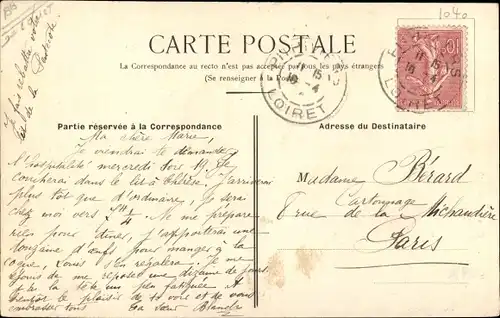 1040
CARTE POSTALE
La Correspondance au recto n'est pas acceptée par tous les pays étrangers
(Se renseigner à la Poste)
LOIRET
LOIRET
Partie réservée à la Correspondance
Adresse du Destinataire
Ma chère Marie,
Je viendrai te demander
l'hospitalité mercredi soir
Coucherai dans le lit à Thérèse. J'arriverai
plus tôt que d'ordinaire, je serai
chez moi vers 4H 1/4. Ne me prépare
rien pour dîner, j'apporterai une
douzaine d'œufs pour manger à la
coque, Louis s'en régalera. Je me
de me reposer une dizaine de jours
la tête un peu fatiguée. A
bientôt le plaisir de te voir et de vous
embrasser tous Ta sœur Blanche
Madame Bérard
Cartonnage
7 rue de la Michaudière
Paris